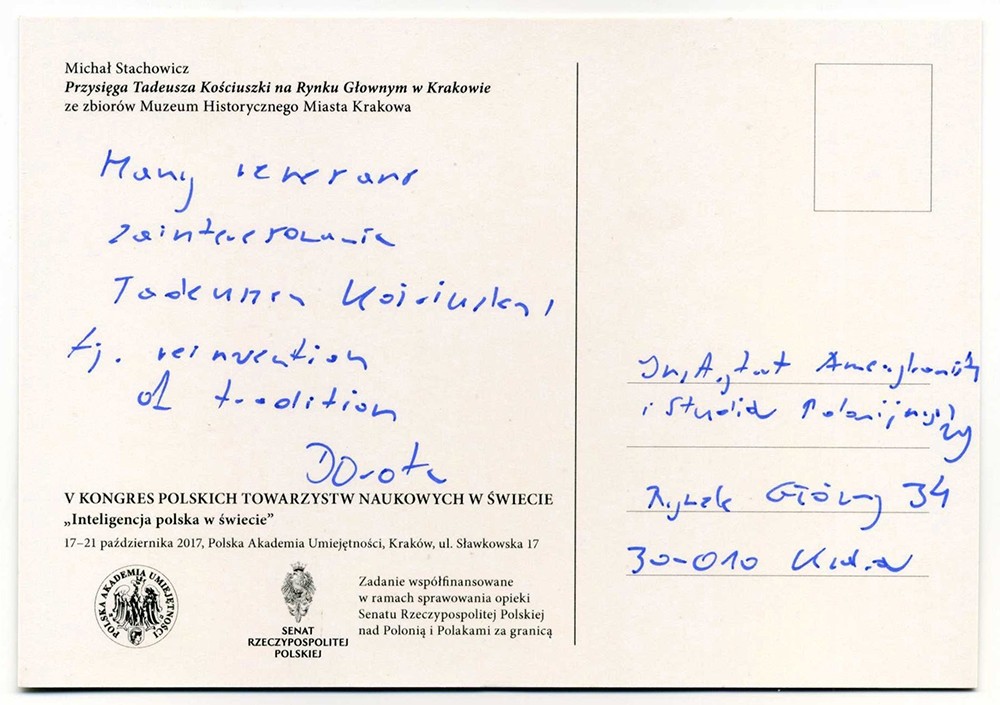 Michał Stachowicz
Przysięga Tadeusza Kościuszki na Rynku Głownym w Krakowie
ze zbiorów Muzeum Historycznego Miasta Krakowa
Mamy renesans
zainteresowania
Tadeuszem Kościuszką,
tj. reinvention
of tradition
Dorota
V KONGRES POLSKICH TOWARZYSTW NAUKOWYCH W ŚWIECIE
„Inteligencja polska w świecie”
17–21 października 2017, Polska Akademia Umiejętności, Kraków, ul. Sławkowska 17
POLSKA AKADEMIA UMIEJĘTNOŚCI
SENAT
RZECZYPOSPOLITEJ
POLSKIEJ
Zadanie współfinansowane
w ramach sprawowania opieki
Senatu Rzeczypospolitej Polskiej
nad Polonią i Polakami za granicą
Instytut Amerykanistyki
i Studiów Polonijnych
Rynek Główny 34
30-010 Kraków